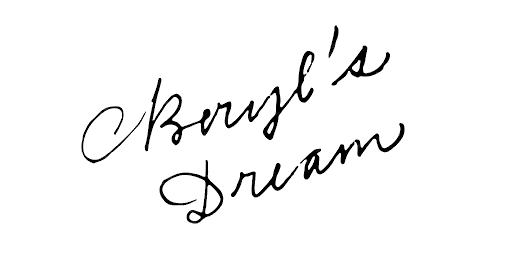 Beryl's
Dream